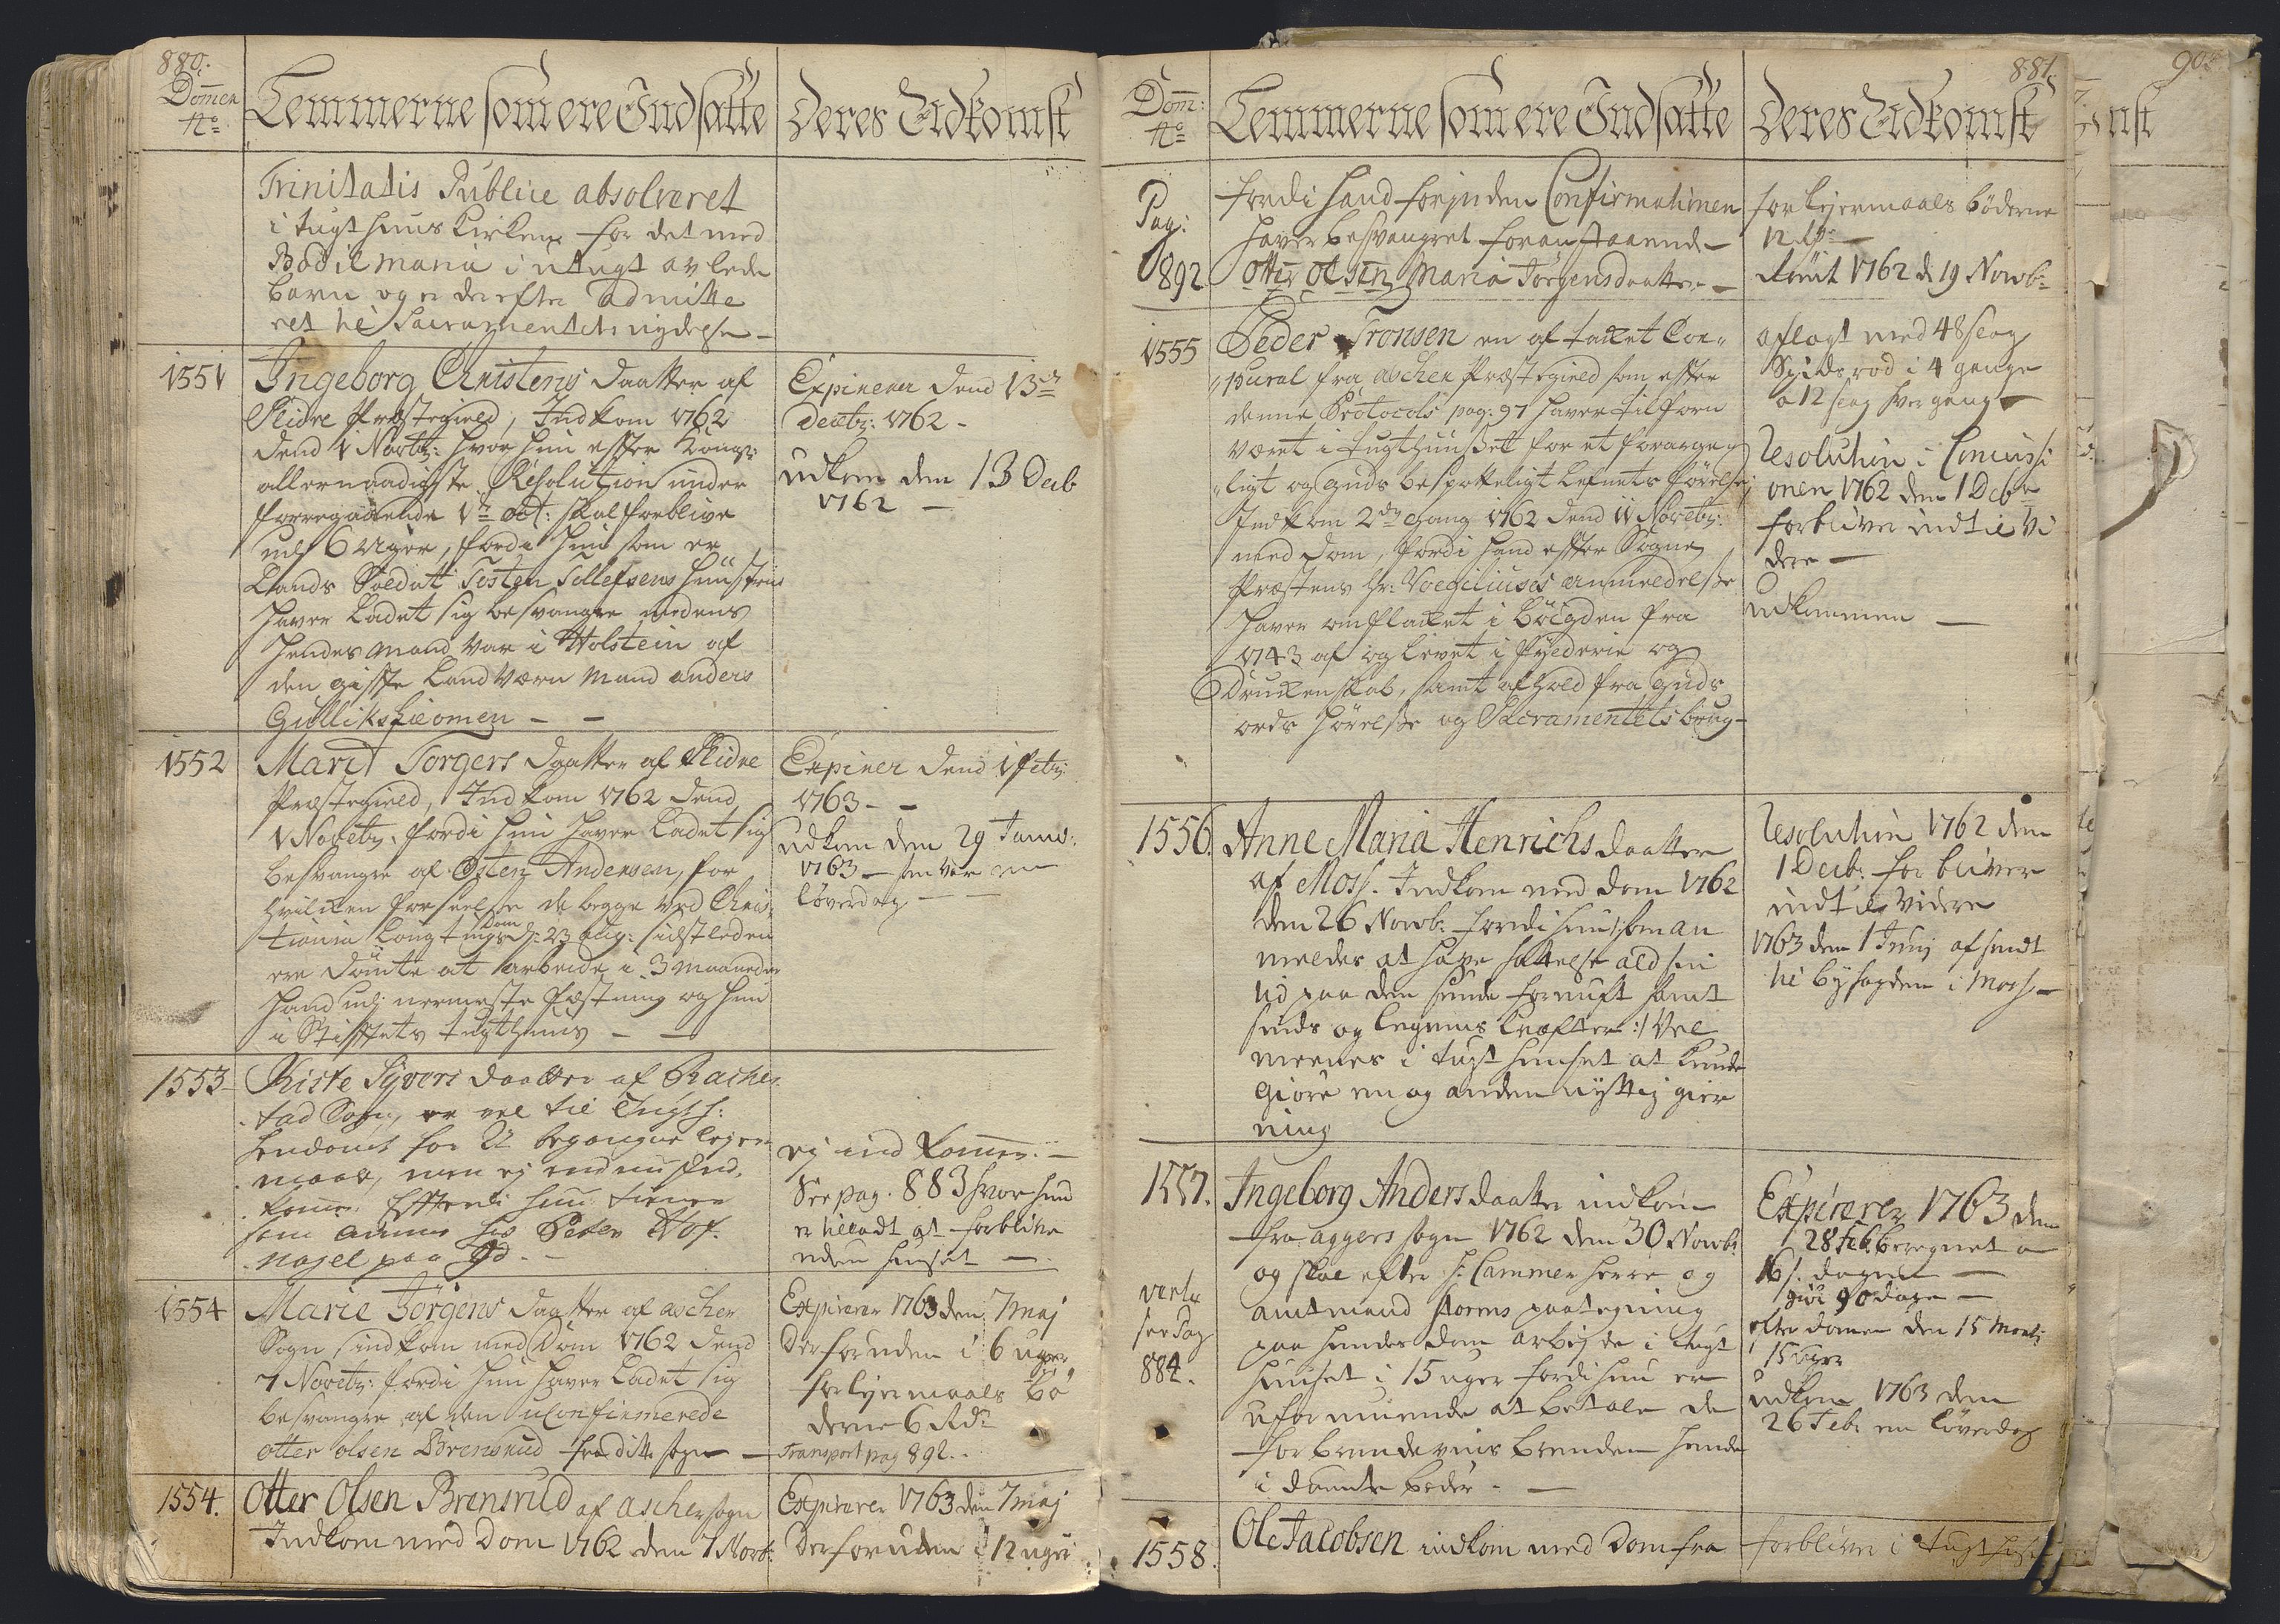 880.
Domen
No
Lemmerne som ere Indsatte
Deres Udkomst
Trinitatis Publice absolveret
i tugthuus Kirken for det med
Bodil Maria i utugt avlede
barn og er derefter admitte
ret til Sacramentets nydelse
1551
Ingeborg Christens daatter af
Slidre Præstegield, Indkom 1762
dend 1 Novbr: hvor hun efter Kongl:
allernaadigste Resolution under
foregaaende 1te Oct: skal forblive
udi 6 Uger, fordi hun som er
Lands Soldat Tosten Tollefsens Huustrue
haver ladet sig besvangre medens
hendes Mand var i Holstein af
den gifte Land Værn Mand Anders
Gulliks
Expirerer dend 13de
Decbr: 1762 -
udkom den 13 Decb
1762 -
1552
Marit Torgers daatter af Slidre
Præstegield, Indkom 1762 dend
1 Novbr: fordi hun haver ladet sig
besvangre af Østen Andersen, for
hvilken forseelse de begge ved Chris
tiania Laugtings Dom d: 23 Aug: sidstleden
ere dømte at arbeide i 3 maaneder
hand udi nermeste Fæstning og hun
i Stiftets tugthuus -
Expirer dend 1 Febr:
1763 -
udkom den 29 Janu:
1763 - som var en
løverdag -
1553
Kiste Syvers daatter af Rachę
stad Sogn, er vel til Tugth:
hendømt for 2de begangne lejer
maal, men ej endnu ind
kom: Efterdi hun tiener
som Amme hos Peter Hof
nagel paa
ej ind kommen. -
See pag. 883 hvor hun
er tilladt at forblive
uden huuset -
1554
Marie Jörgens daatter af Ascher
Sogn, indkom med Dom 1762 dend
7 Novbr: fordi hun haver ladet sig
besvangre af den uConfirmerede
Otter Olsen Brensrud fra ditto sogn -
Expirerer 1763 den 7 Maj
Derforuden i 6 uger
for lejermaals bö
derne 6 Rdr
Transport pag 892.
1554.
Otter Olsen Brensrud af Ascher sogn
Indkom med Dom 1762 den 7 Novb:
Expirerer 1763 den 7 Maj
Derforuden i 12 uger
881.
Dom:
No
Lemmerne som ere Indsatte
Deres Udkomst
Pag:
892
fordi hand forinden Confirmationen
haver besvangret foranstaaende
Otter Olsen Maria Jörgensdaatter -
for lejermaals böderne
12 Rdr -
Römt 1762 d 19 Novb:
1555
Peder Tronsen en af taxet Cor,,
,,pural fra Aschen Præstegield som efter
denne Protocols pag: 97 haver tilforn
været i Tugthuuset for et forarge
,,ligt og Guds bespotteligt Lefnets förelse
Indkom 2den Gang 1762 dend 11 Novebr:
med Dom, fordi hand efter Sogne
Præstens Hr: Voegeliuses anmeldelse
haver omflaxet i Böigden fra
1743 af og levet i og
Druckenskab, samt afhold fra Guds
ords hörelse og Sacramentets brug -
aflagt med 48 slag
Spidsrod i 4 gange
a 12 slag hver gang -
Resolution i Comissi
onen 1762 den 1 Decbr
forbliver indtil Vi
dere -
udkommen -
1556.
Anne Maria Henrichs daatter
af Moss. Indkom med Dom 1762
den 26 Novb: fordi hun /: som an
meldes at have hattelse ald sin
tid paa den sunde fornuft samt
sinds og legems kræfter :/ vel
meenes i tugthuuset at kunde
giöre en og anden nyttig gier
ning
Resolution 1762 den
1 Decb: forbliver
indtil Videre
1763 den 1 Junj afsendt
til byfogden i Moss -
1557.
Ingeborg Anders daatter indkom
fra Aggers sogn 1762 den 30 Novb:
og skal efter H: Cammerherre og
amtmand Storms paategning
paa hendes Dom arbejde i tugt
huuset i 15 uger fordi hun er
uformuende at betale de
for brendeviins brenden hende
i dömte böder -
verte
see Pag
884.
Expirerer 1763 den
28 Feb. beregnet a
16 s. dagen -
giör 90 dage -
efter domen den 15 Marti
15 Uger
udkom 1763 den
26 Feb: en löverdag
1558.
Ole Jacobsen indkom med Dom fra
forbliver i Tugthuset
90
nst